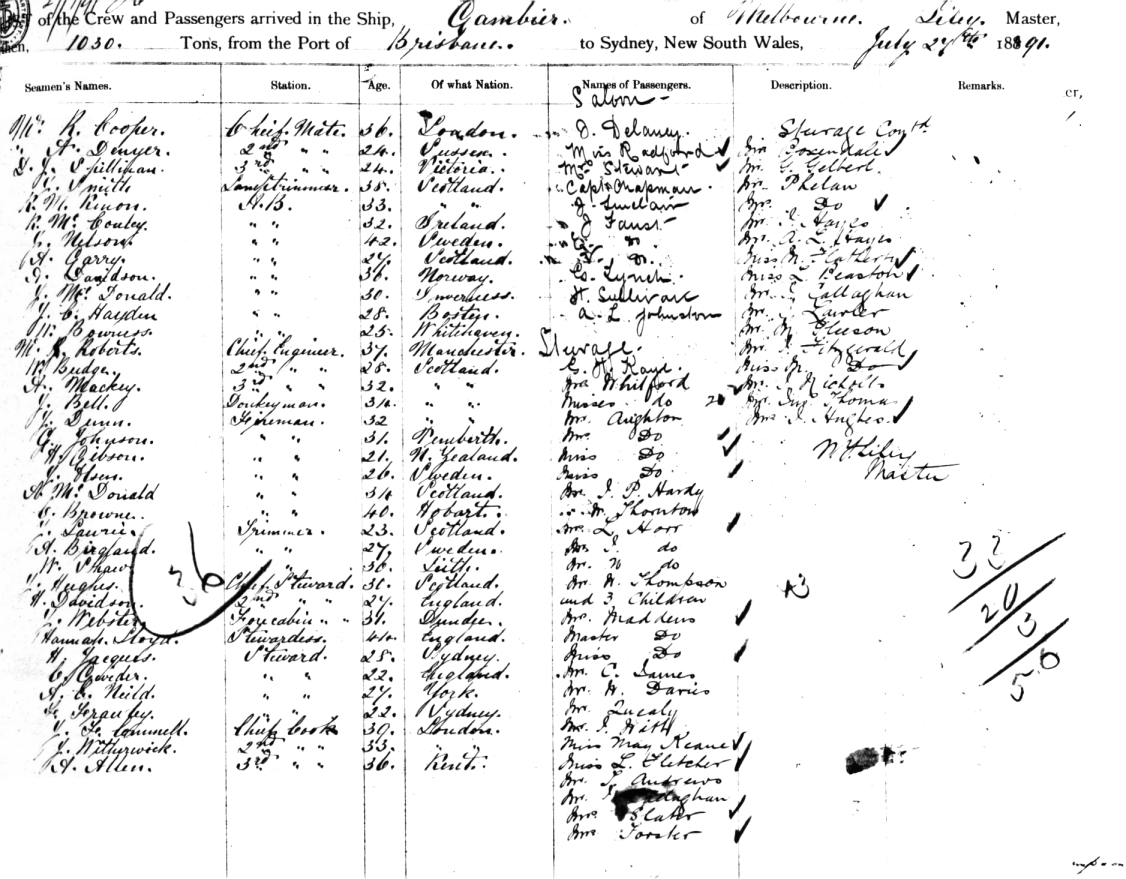 of the Crew and Passengers arrived in the Ship, Gambier. of Melbourne. Liley. Master,
1030. Tons, from the Port of Brisbane. to Sydney, New South Wales, July 27th 1891.
Seamen's Names. Station. Age. Of what Nation. Names of Passengers. Description. Remarks.
Saloon
R. Cooper. Chief Mate. 36. London. J. Delaney. Steerage Contd
A. Denyer. 2nd " " 24. Sussex. Miss Radford Mrs Rosendale
3rd " " 24. Victoria. Mrs Stewart Mr. G. Gelbert.
Smith Lamptrimmer. 35. Scotland. Capt Chapman. Mr. Phelan
R. M. Kinon. A.B. 33. " " J. Sinclair Mrs. Do
R. Mc Conley " " 32. Ireland. J Faust Mr. J. Hayes
J. Nelson. " " 42. Sweden. Mr. A. L. Hayes
A. Garry. " " 27. Scotland. Miss M. Flatherty
J. Davidson. " " 36. Norway. Lynch. Miss L. Peaston
J. Mc Donald. " " 30. Inverness. H. Sullivan Mr. Callaghan
J. C. Hayden " " 28. Boston. A. L. Johnston Mr. J. Lawler
W. Bowness. " " 25. Whitehaven. Mr. M. Gleeson
Roberts. Chief Engineer. 37. Manchester. Steerage. Mr. J. Fitzgerald
W. Budge. 2nd " " 28. Scotland. Miss M. Do
A. Mackey. 3rd " " 32. " " Mrs Whitford Mr. J. Nicholls
J. Bell. Donkeyman. 34. " " Misses do 2 Mr. Thomas
J. Dunn. Fireman. 32 Mr. Aughton Mrs. J. Hughes
G. Johnson. " " 31. Pemberth. Mrs. Do
A. Gibson. " " 21. N. Zealand. Miss Do W. Liley
J. Olsen. " " 26. Sweden. Miss Do Master
A. Mc Donald " " 34. Scotland. Mr. J. P. Hardy
C. Browne. " " 40. Hobart. W. Thornton
J. Laurie. Trimmer. 23. Scotland. Mrs. L. Horr
A. Birgland. " " 27. Sweden. J. do
W. Shaw " 36. Leith. Mr. W do
J. Hughes. Chief Steward. 30. Scotland. Mr. W. Thompson
36
33
H. Davidson. 2nd " " 27. England. and 3 Children
20
J. Webster. Forecabin " " 31. Dundee. Mrs. Maddens
3
Hannah Lloyd. Stewardess. 40. England. Master Do
H. Jacques. Steward. 25. Sydney. Miss Do
56
C. Cowder. " " 22. England. Mr. C. James
A. C. Neild. " " 27. York. Mr. W. Davies
" " 22. Sydney. Mr. Quealy
J. F. Cammell. Chief Cook 39. London. Mr. J. Watt
J. Witherwick. 2nd " " 33. " " Miss May Keane
A. Allen. 3rd " " 36. Kent. Miss L. Fletcher
Mr. J. Andrews
Mr.
Mrs Slater
Mrs Forster